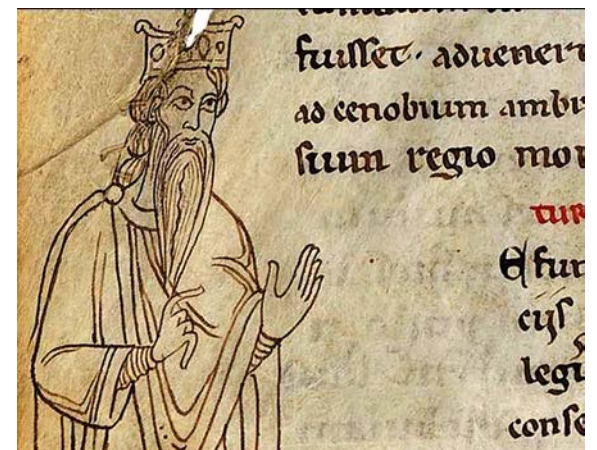 fuisset. aduener
ad cenobium amb
suum regio mo
tur
E fun
cijs
legi
conse